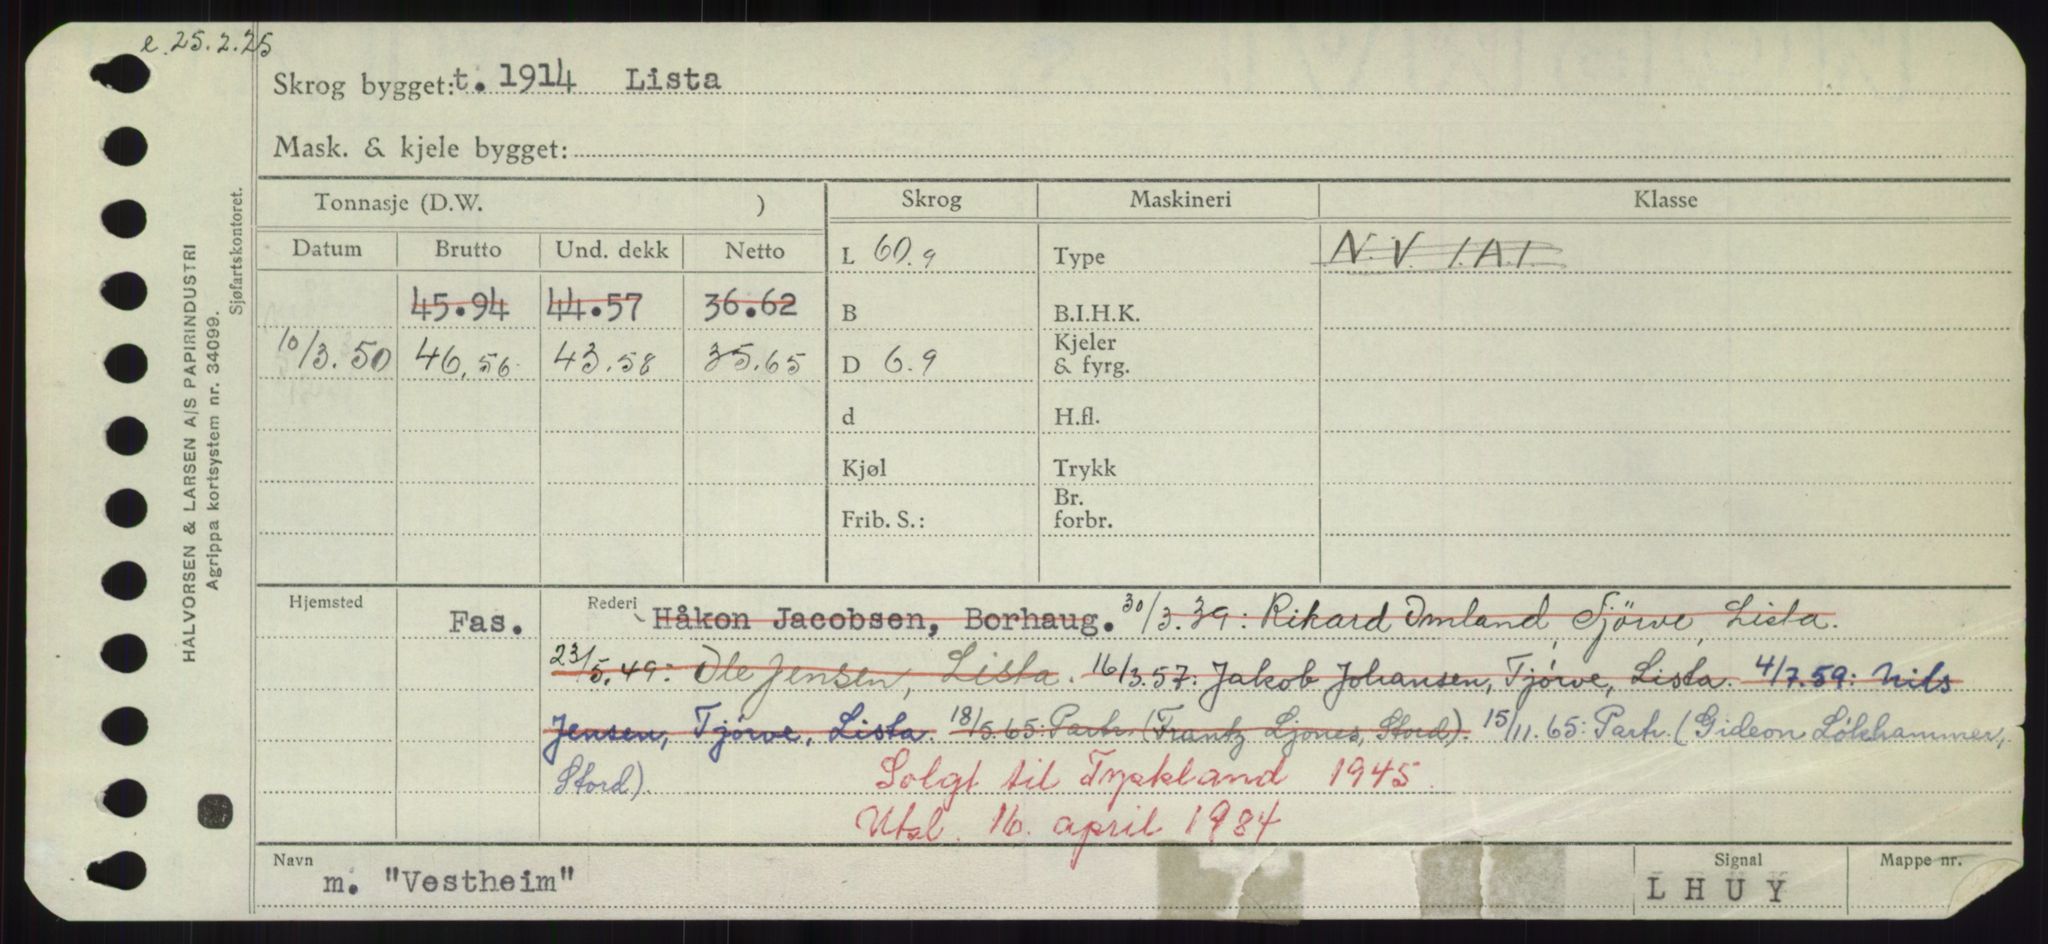 e. 25.2.25
Skrog bygget: t. 1914 Lista
Mask. & kjele bygget:
Tonnasje (D.W. ) Skrog Maskineri Klasse
Datum Brutto Und. dekk Netto L 60.9 Type N.V. 1.A.1.
45.94 44.57 36.62 B B.I.H.K.
10/3.50 46,56 43.58 35.65 D 6.9 Kjeler & fyrg.
d H.fl.
Kjøl Trykk
Frib. S.: Br. forbr.
Hjemsted Fas. Rederi Håkon Jacobsen, Borhaug. 30/3.39: Rikard Omland, Tjörve, Lista.
23/5.49: Ole Jensen, Lista. 16/3.57: Jakob Johansen, Tjørve, Lista. 4/7.59: Nils
Jensen, Tjørve, Lista. 18/5.65: Partr. (Frantz Ljones, Stord). 15/11.65: Partr. (Gideon Lökhammer,
Stord). Solgt til Tyskland 1945.
Utsl. 16. april 1984
Navn m. "Vestheim" Signal LHUY Mappe nr.
HALVORSEN & LARSEN A/S PAPIRINDUSTRI
Agrippa kortsystem nr. 34099.
Sjøfartskontoret.